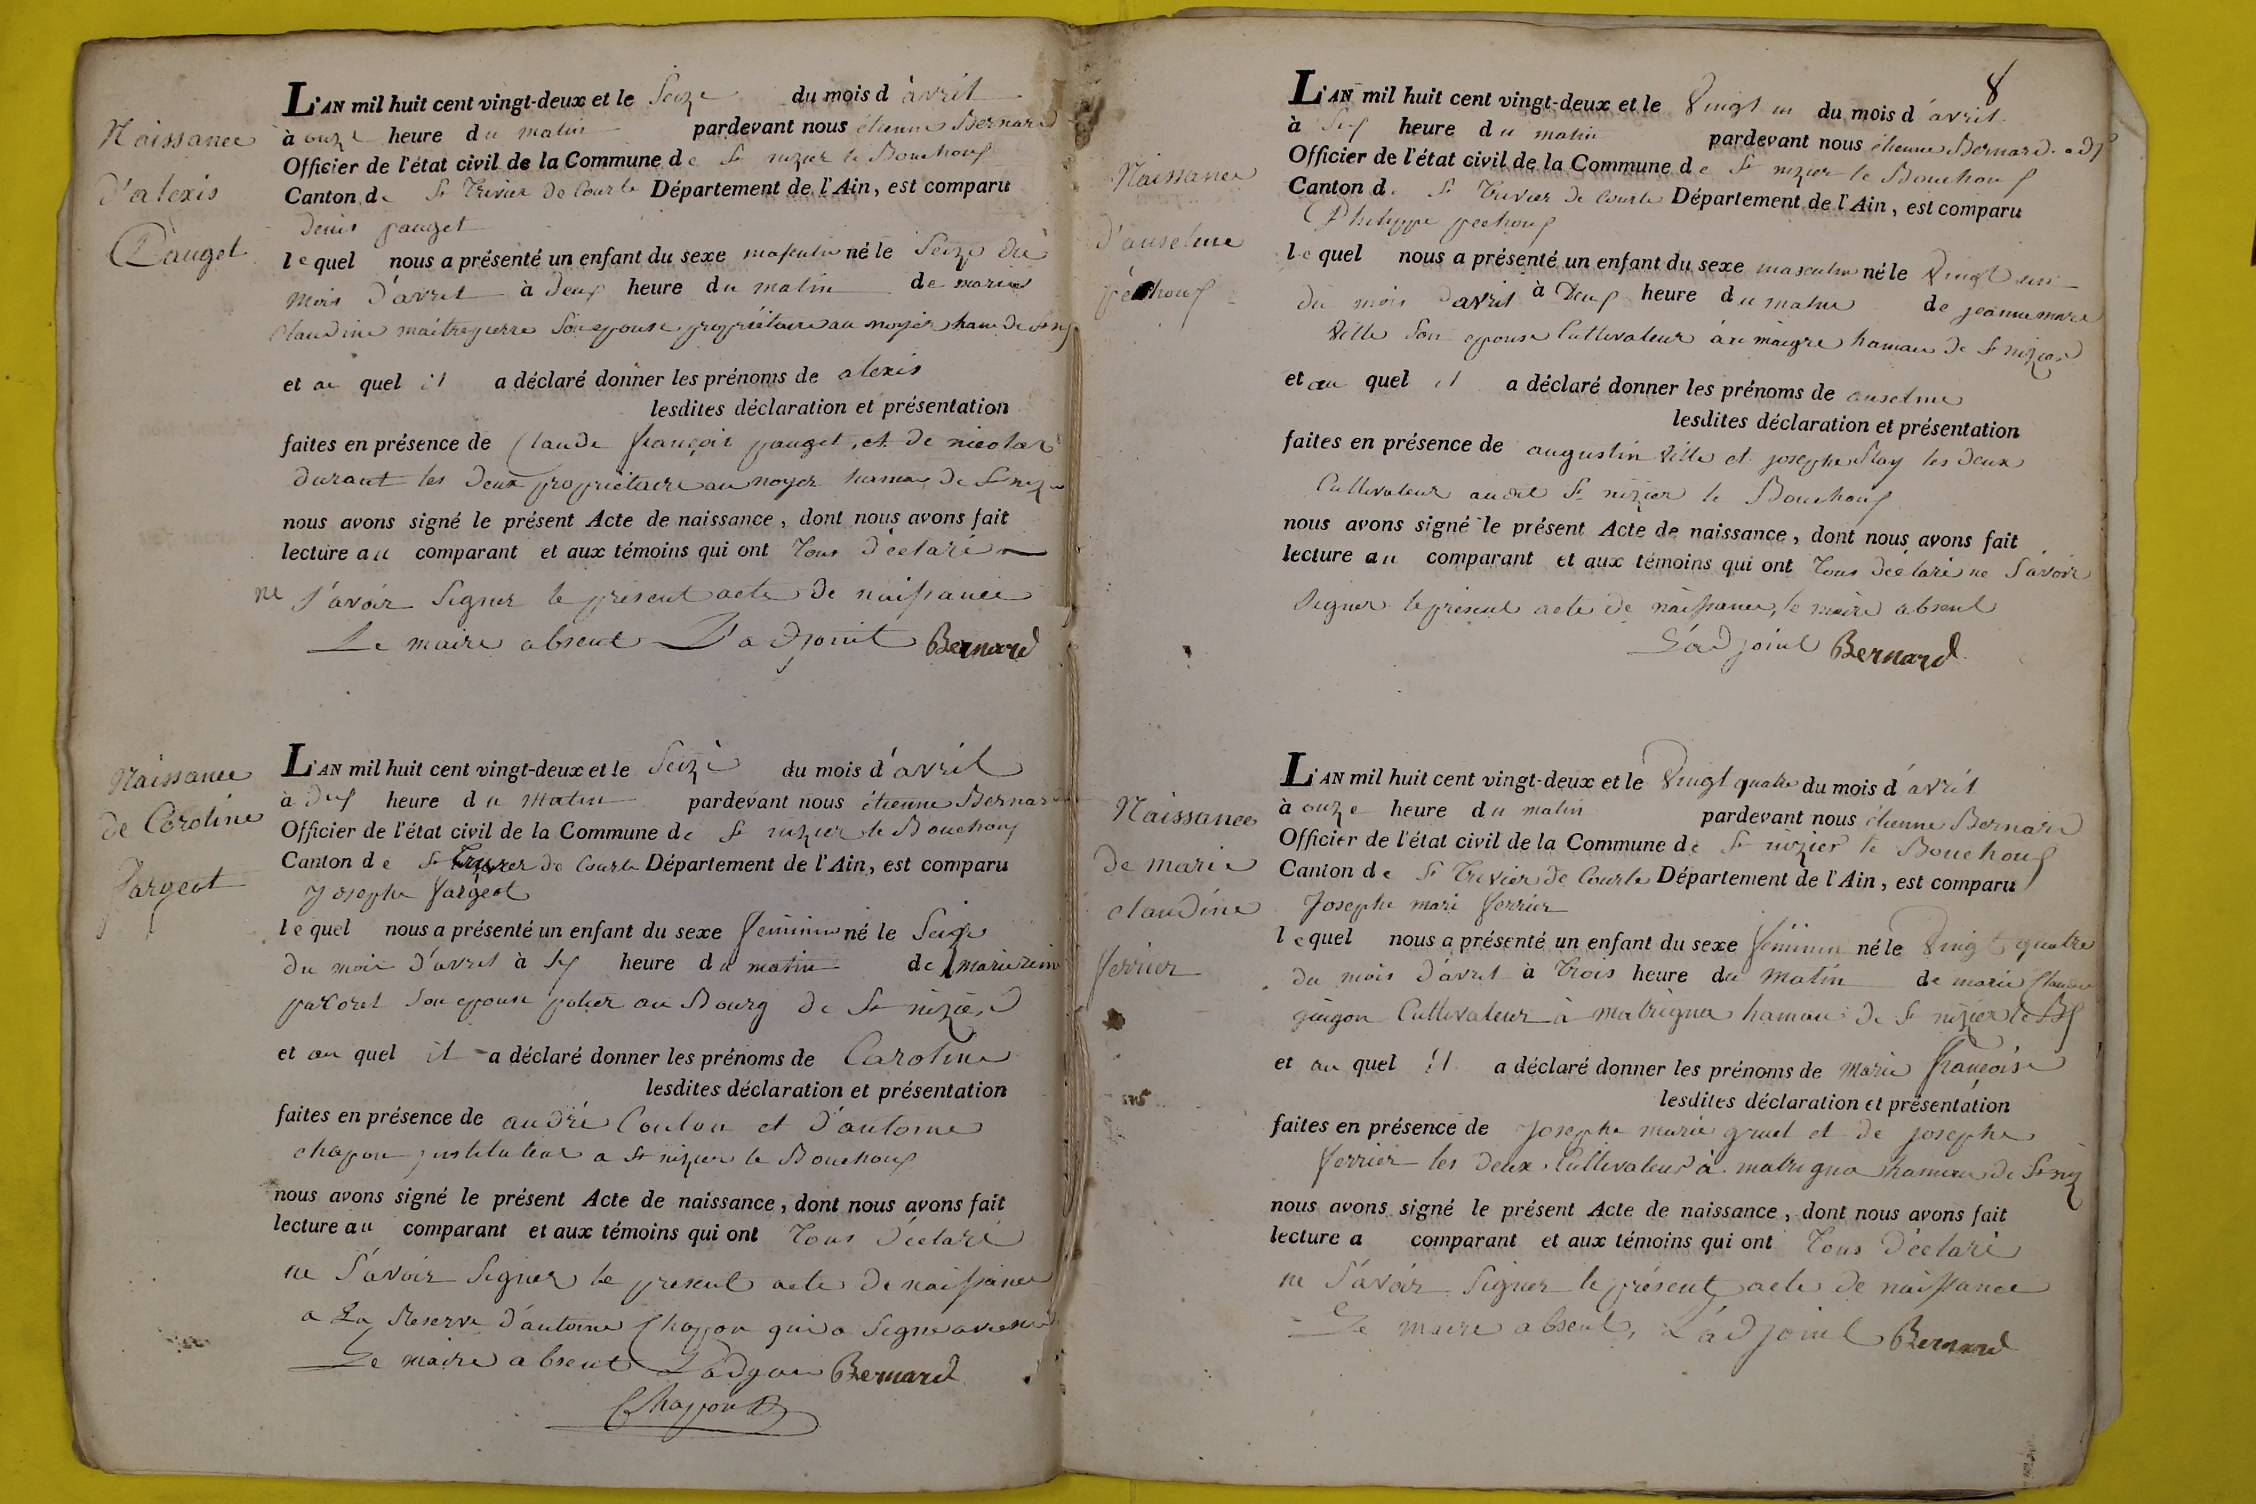 Naissance
d'alexis
Pauget
L'AN mil huit cent vingt-deux et le Seize du mois d'avril
à onze heure du matin pardevant nous étienne Bernard
Officier de l'état civil de la Commune de St nizier le Bouchoux
Canton de St Trivier de Courte Département de l'Ain, est comparu
denis pauget
lequel nous a présenté un enfant du sexe masculin né le Seize du
mois d'avril à deux heure du matin de marie
Claudine maitrepierre Son epouse propriétaire au noyer hame de St niz
et au quel il a déclaré donner les prénoms de alexis
lesdites déclaration et présentation
faites en présence de Claude françois pauget, et de nicolas
durant les deux propriétaire au noyer hamau de St niz
nous avons signé le présent Acte de naissance, dont nous avons fait
lecture au comparant et aux témoins qui ont Tous déclaré
ne Savoir Signer le présent acte de naissance
Le maire absent L'adjoint Bernard
Naissance
de Caroline
fargeot
L'AN mil huit cent vingt-deux et le Seize du mois d'avril
à dix heure du matin pardevant nous étienne Bernard
Officier de l'état civil de la Commune de St nizier le Bouchoux
Canton de St Trivier de Courte Département de l'Ain, est comparu
Josephe fargeot
lequel nous a présenté un enfant du sexe feminin né le Seize
du mois d'avril à Six heure du matin de marie
Son epouse potier au Bourg de St nizier
et au quel il a déclaré donner les prénoms de Caroline
lesdites déclaration et présentation
faites en présence de andré Coulon et d'antoine
chapon justituteur a St nizier le Bouchoux
nous avons signé le présent Acte de naissance, dont nous avons fait
lecture au comparant et aux témoins qui ont Tous déclaré
ne Savoir Signer le present acte de naissance
a La Reserve d'antoine Chapon qui a Signé avec
Le maire absent L'adjoin Bernard
Chapon
8
Naissance
d'anselme
péchoux
L'AN mil huit cent vingt-deux et le Vingt un du mois d'avril
à Six heure du matin pardevant nous étienne Bernard adj
Officier de l'état civil de la Commune de St nizier le Bouchoux
Canton de St Trivier de Courte Département de l'Ain, est comparu
Philippe pechoux
lequel nous a présenté un enfant du sexe masculin né le Vingt un
du mois d'avril à Deux heure du matin de jeanne marie
Ville Son epouse Cultivateur au maigre hamau de St nizier
et au quel il a déclaré donner les prénoms de anselme
lesdites déclaration et présentation
faites en présence de augustin Ville et josephe les deux
Cultivateur audit St nizier le Bouchoux
nous avons signé le présent Acte de naissance, dont nous avons fait
lecture au comparant et aux témoins qui ont Tous déclaré ne Savoir
Signer le présent acte de naissance, le maire absent
L'adjoint Bernard
Naissance
de marie
claudine
ferrier
L'AN mil huit cent vingt-deux et le Vingt quatre du mois d'avril
à onze heure du matin pardevant nous étienne Bernard
Officier de l'état civil de la Commune de St nizier le Bouchoux
Canton de St Trivier de Courte Département de l'Ain, est comparu
Josephe mari ferrier
lequel nous a présenté un enfant du sexe féminin né le Vingt quatre
du mois d'avril à Trois heure du matin de marie Claudine
guigon Cultivateur à matrigna hamau de St nizier le Bx
et au quel il a déclaré donner les prénoms de marie françoise
lesdites déclaration et présentation
faites en présence de Josephe marie gruel et de josephe
ferrier les deux Cultivateur à matrigna hameau de St niz
nous avons signé le présent Acte de naissance, dont nous avons fait
lecture a comparant et aux témoins qui ont Tous déclaré
ne Savoir Signer le présent acte de naissance
Le maire absent, L'adjoint Bernard